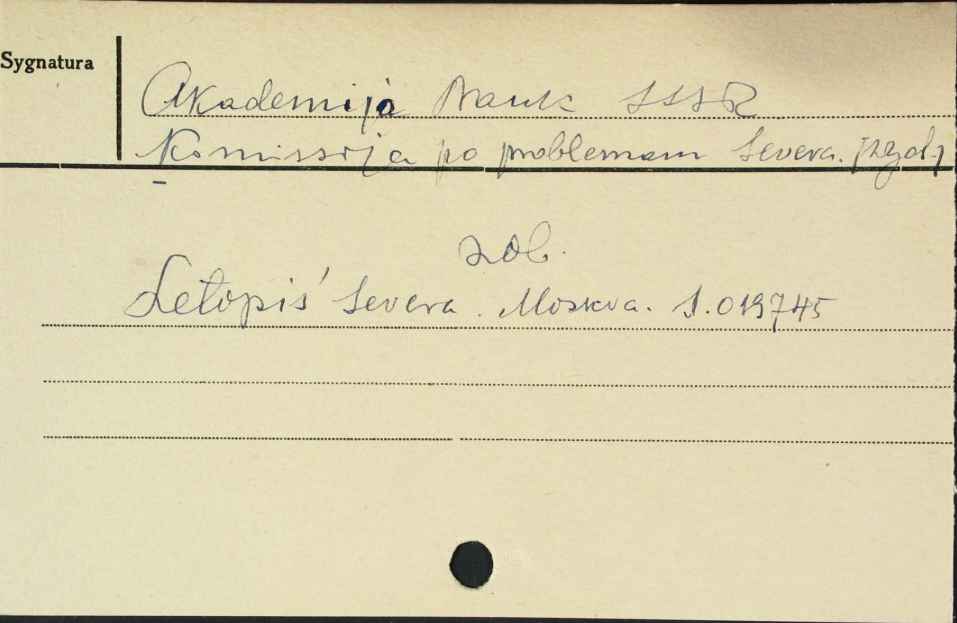 Sygnatura
Akademija Nauk SSSR
Komissija po problemam Severa. [wyd.]
zob.
Letopis' Severa. Moskva. S.019745